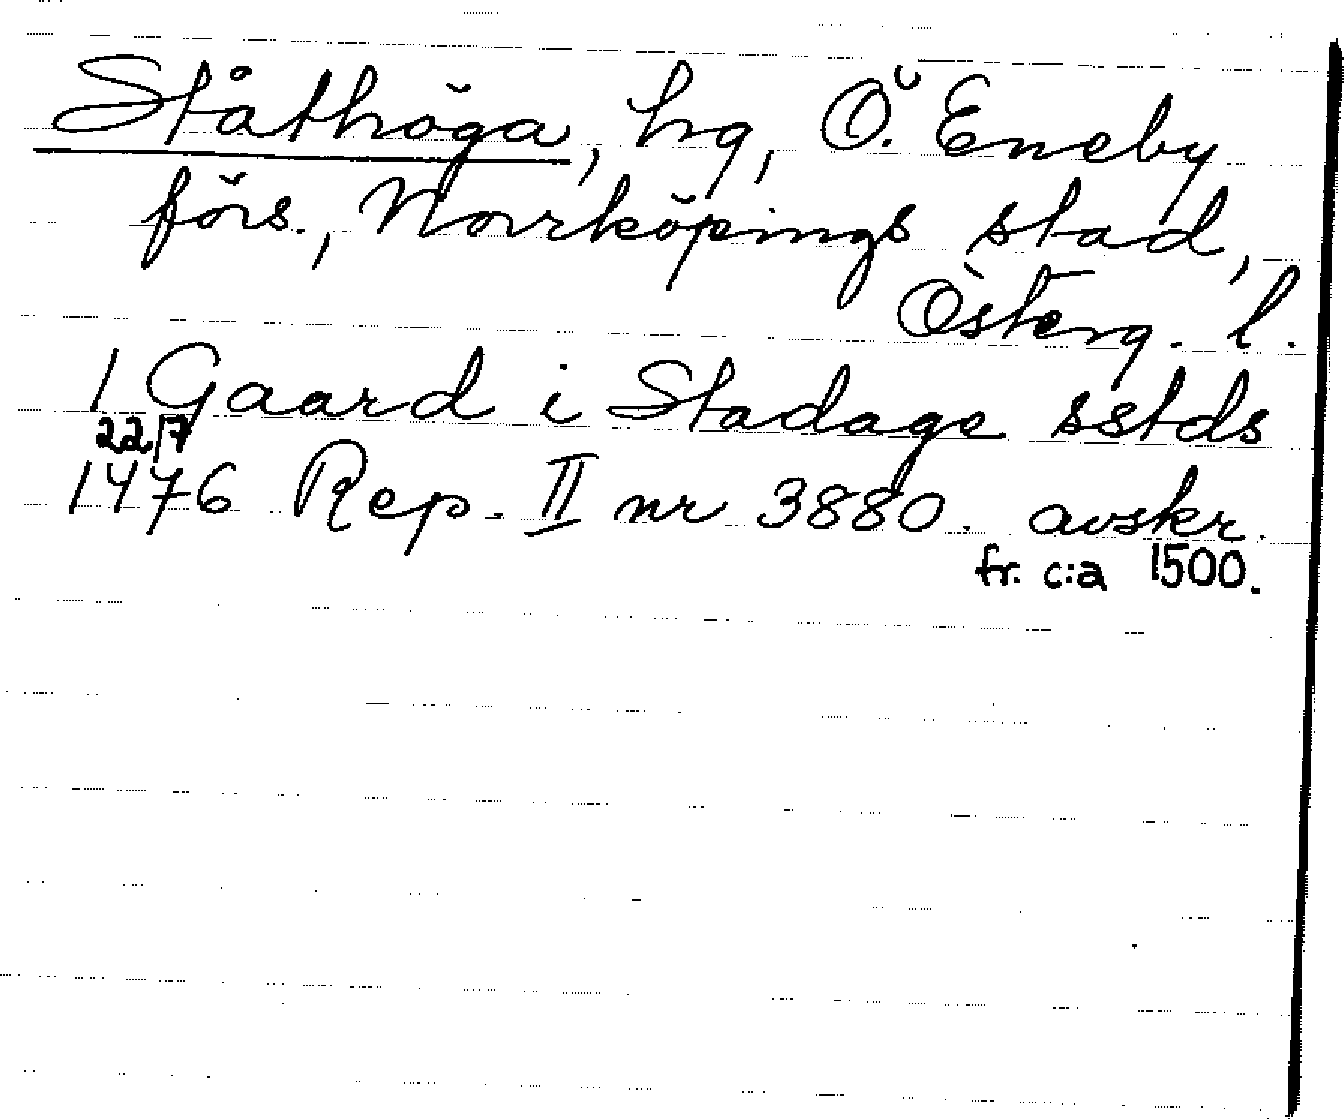 Ståthöga, hg, Ö. Eneby
förs., Norrköpings stad,
Österg. l.
1 Gaard i Stadage sstds
22/7
1476 Rep. II nr 3880. avskr.
fr. c:a 1500.